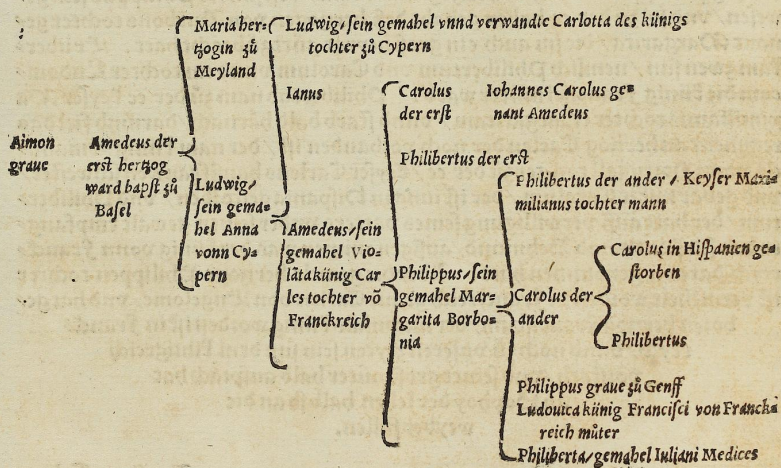 Aimon
graue
Amedeus der
erst hertzog
ward bapst zů
Basel
Maria her-
tzogin zů
Meyland
Ludwig/
sein gema-
hel Anna
vonn Cy-
pern
Ludwig/sein gemahel vnnd verwandte Carlotta des künigs
tochter zů Cypern
Ianus
Amedeus/sein
gemahel Vio-
lātakünig Car
les tochter vō
Franckreich
Carolus
der erst
Iohannes Carolus ge
nant Amedeus
Philibertus der erst
Philippus/sein
gemahel Mar-
garita Borbo-
nia
Philibertus der ander/Keyser Maxi-
milianus tochter mann
Carolus der
ander
Carolus in Hispanien ge-
storben
Philibertus
Philippus graue zů Genff
Ludouica künig Francisci von Franck-
reich můter
Philiberta/gemahel Iuliani Medices